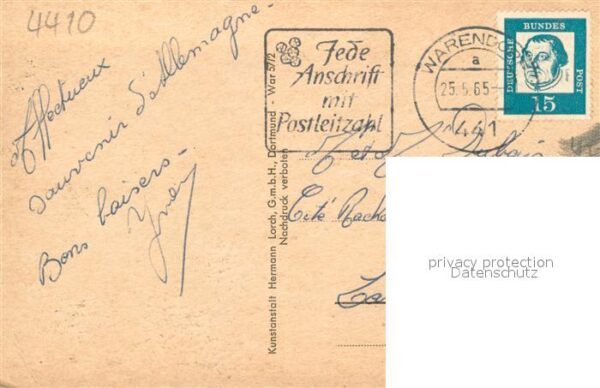 4410
Affectueux
souvenir d'Allemagne-
Bons baisers-
Kunstanstalt Hermann Lorch, G.m.b.H., Dortmund - War 5/72
Nachdruck verboten
Jede
Anschrift
mit
Postleitzahl
WARENDORF
a
25.5.65
441
DEUTSCHE
BUNDES
POST
15
Cité
privacy protection
Datenschutz